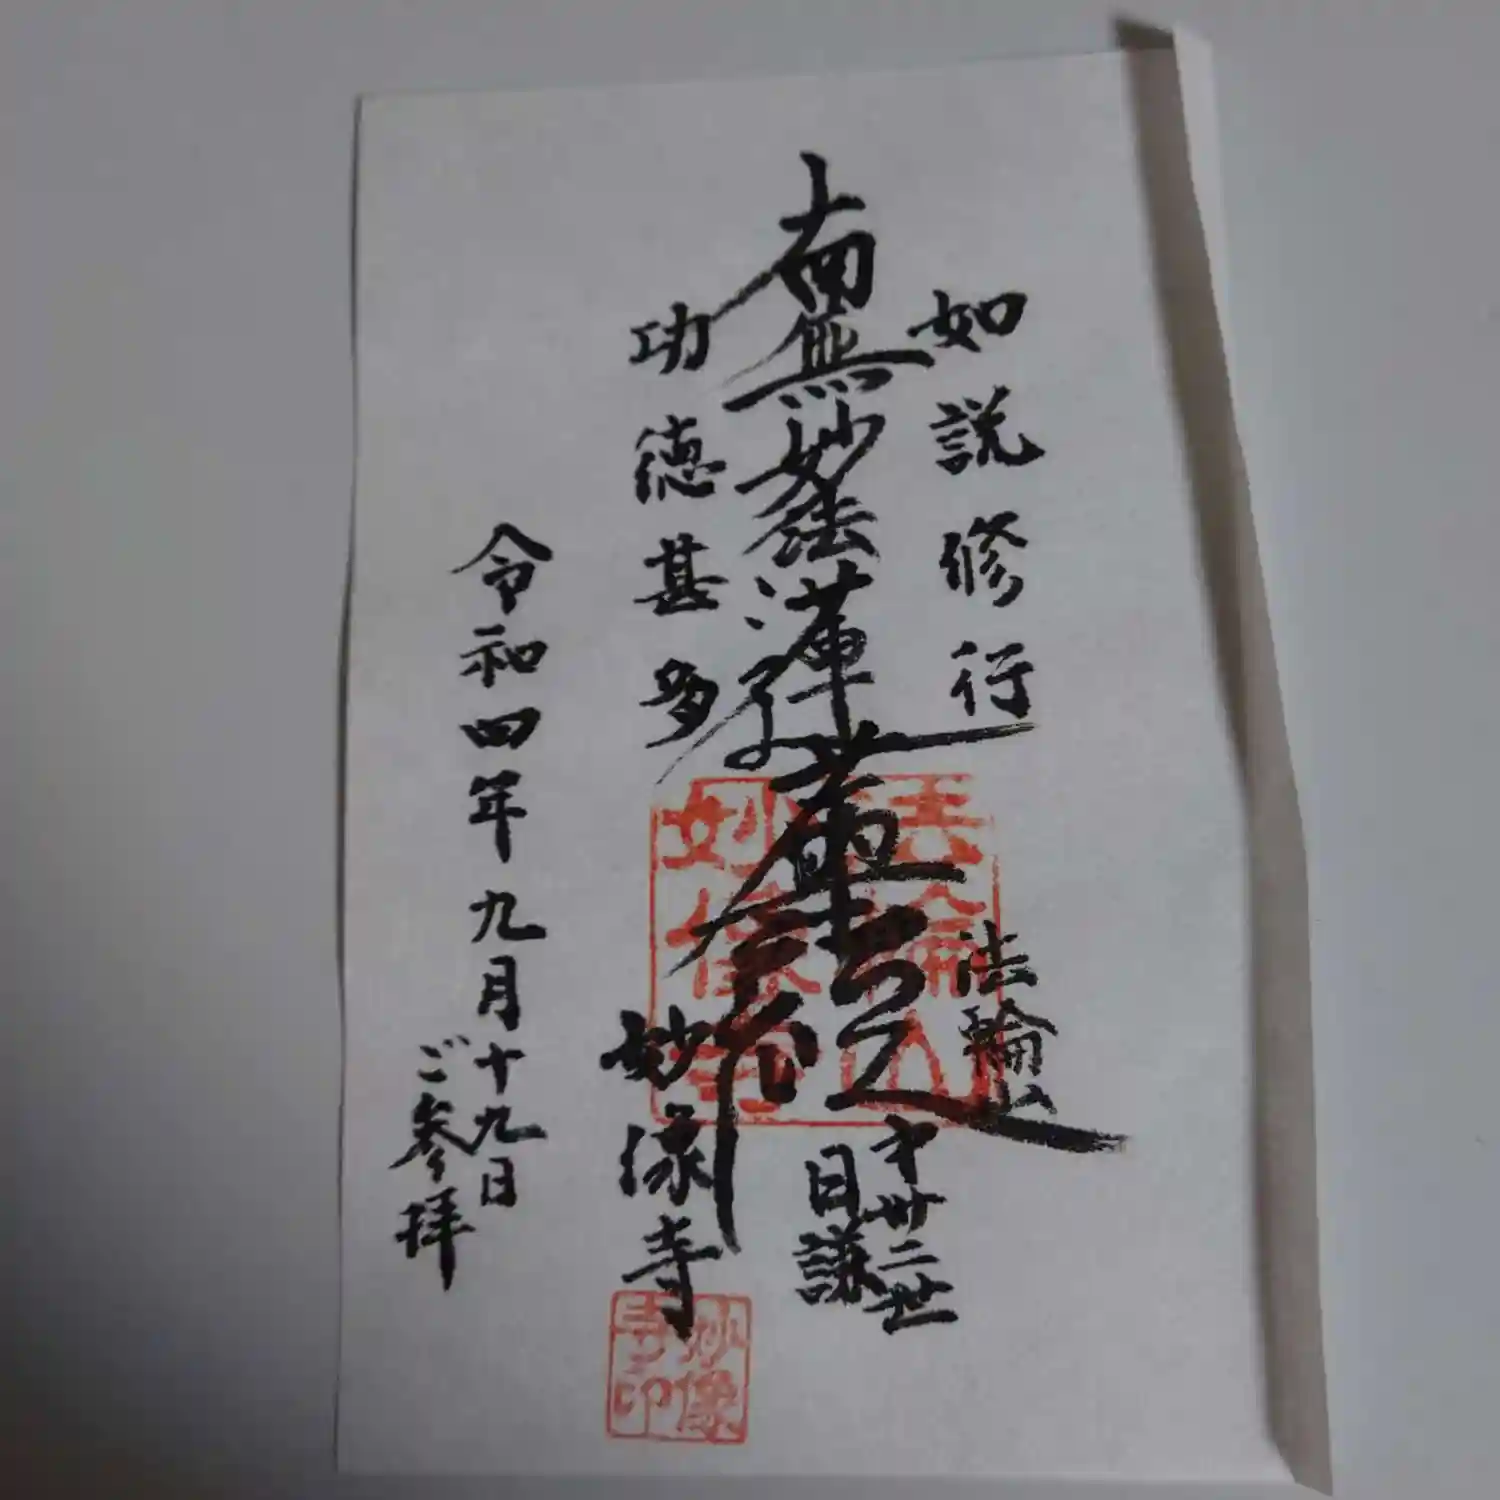 如説修行
南無妙法蓮華経
功徳甚多
法輪山
才卅二世
日謙
妙像寺
令和四年九月十九日
ご参拝
法輪山
妙像寺
妙像
寺印